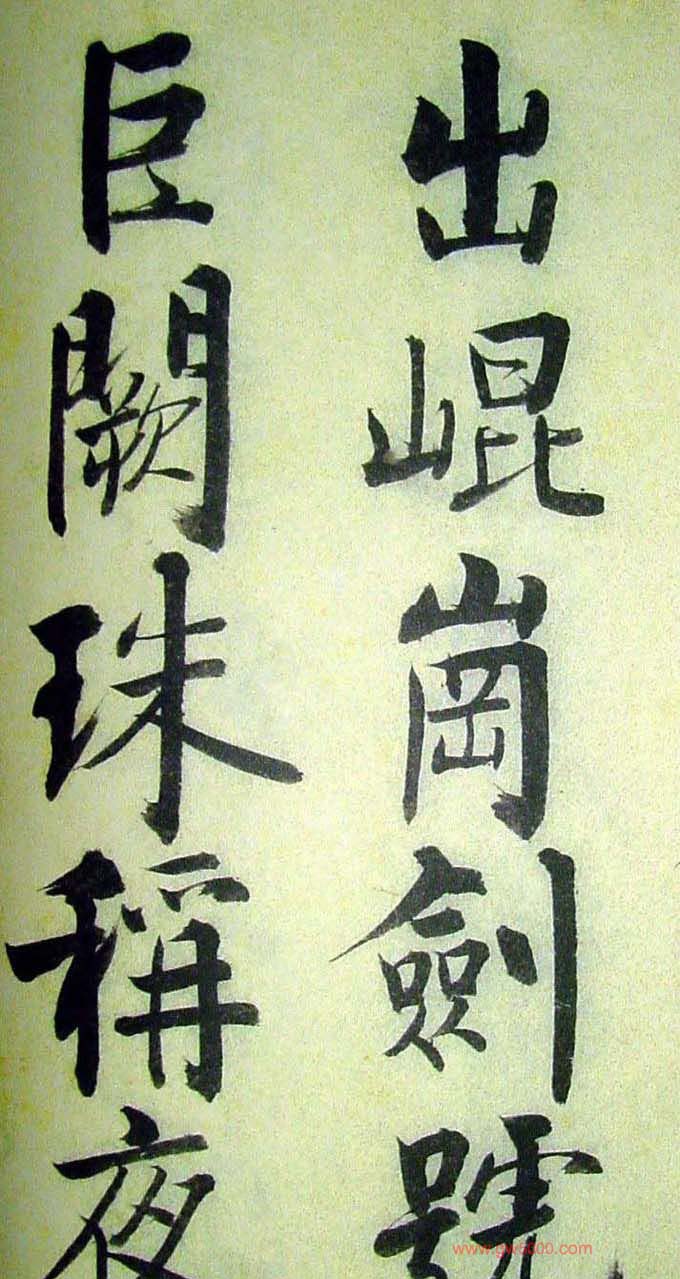 出崐崗劍號
巨闕珠稱夜
www.gw5000.com